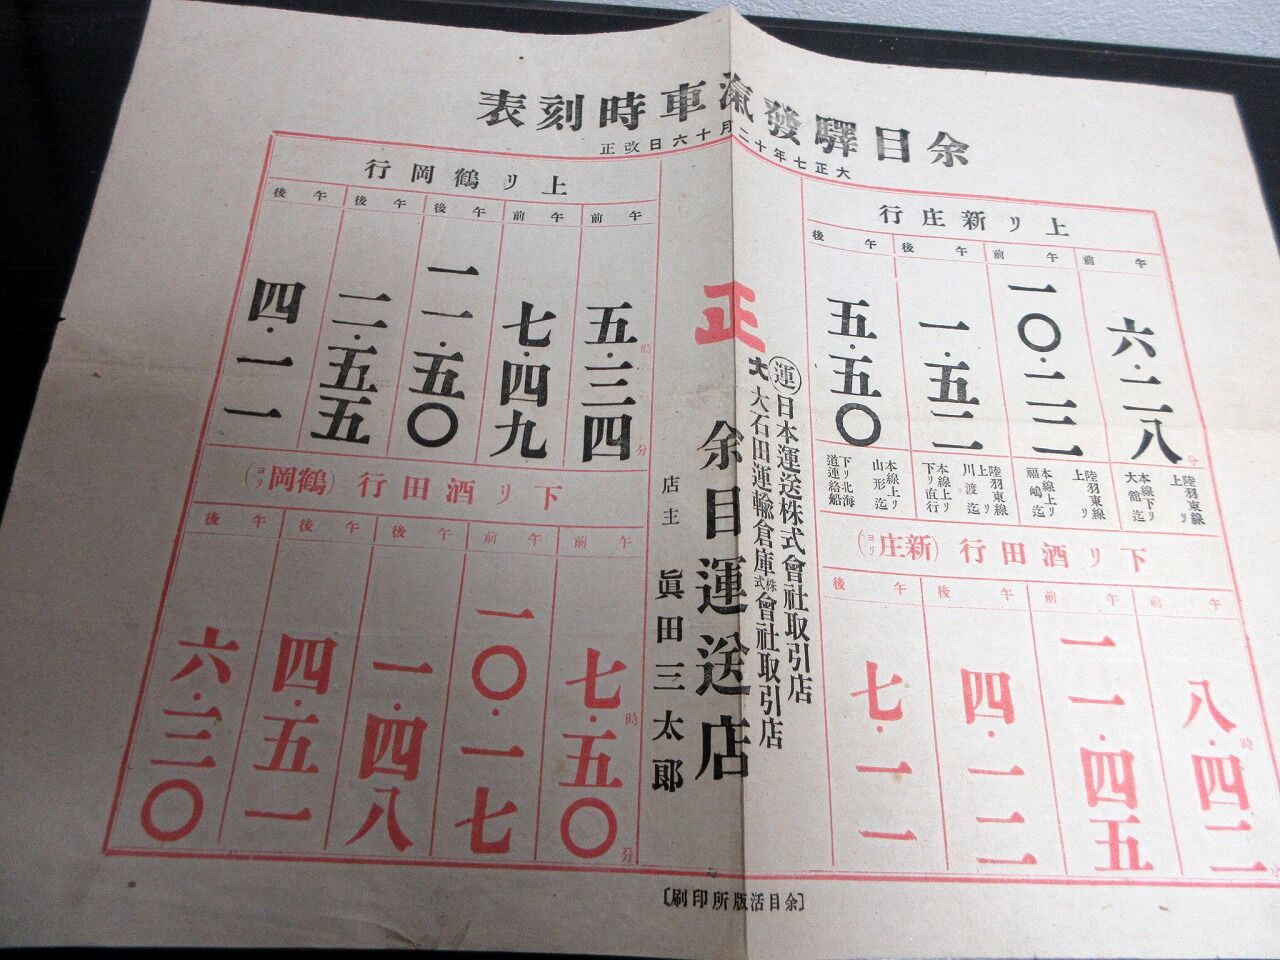 余目驛發滊車時刻表
大正七年十二月十六日改正
上リ新庄行
午前
午前
午後
午後
六・二八分
一〇・二三
一・五二
五・五〇
陸羽東線上リ
本線下リ大舘迄
陸羽東線上リ
本線上リ福嶋迄
陸羽東線上リ川渡迄
本線上リ下リ直行
本線上リ山形迄
下リ北海道連絡船
下リ酒田行（新庄ヨリ）
午前
午前
午後
午後
八時・四二
一一・四五
四・一二
七・一一
正
運 日本運送株式會社取引店
大 大石田運輸倉庫株式會社取引店
余目運送店
店主 眞田三太郎
上リ鶴岡行
午前
午前
午後
午後
午後
五時・三四分
七・四九
一一・五〇
二・五五
四・一一
下リ酒田行（鶴岡ヨリ）
午前
午前
午後
午後
午後
七時・五〇分
一〇・一七
一・四八
四・五一
六・三〇
〔余目活版所印刷〕